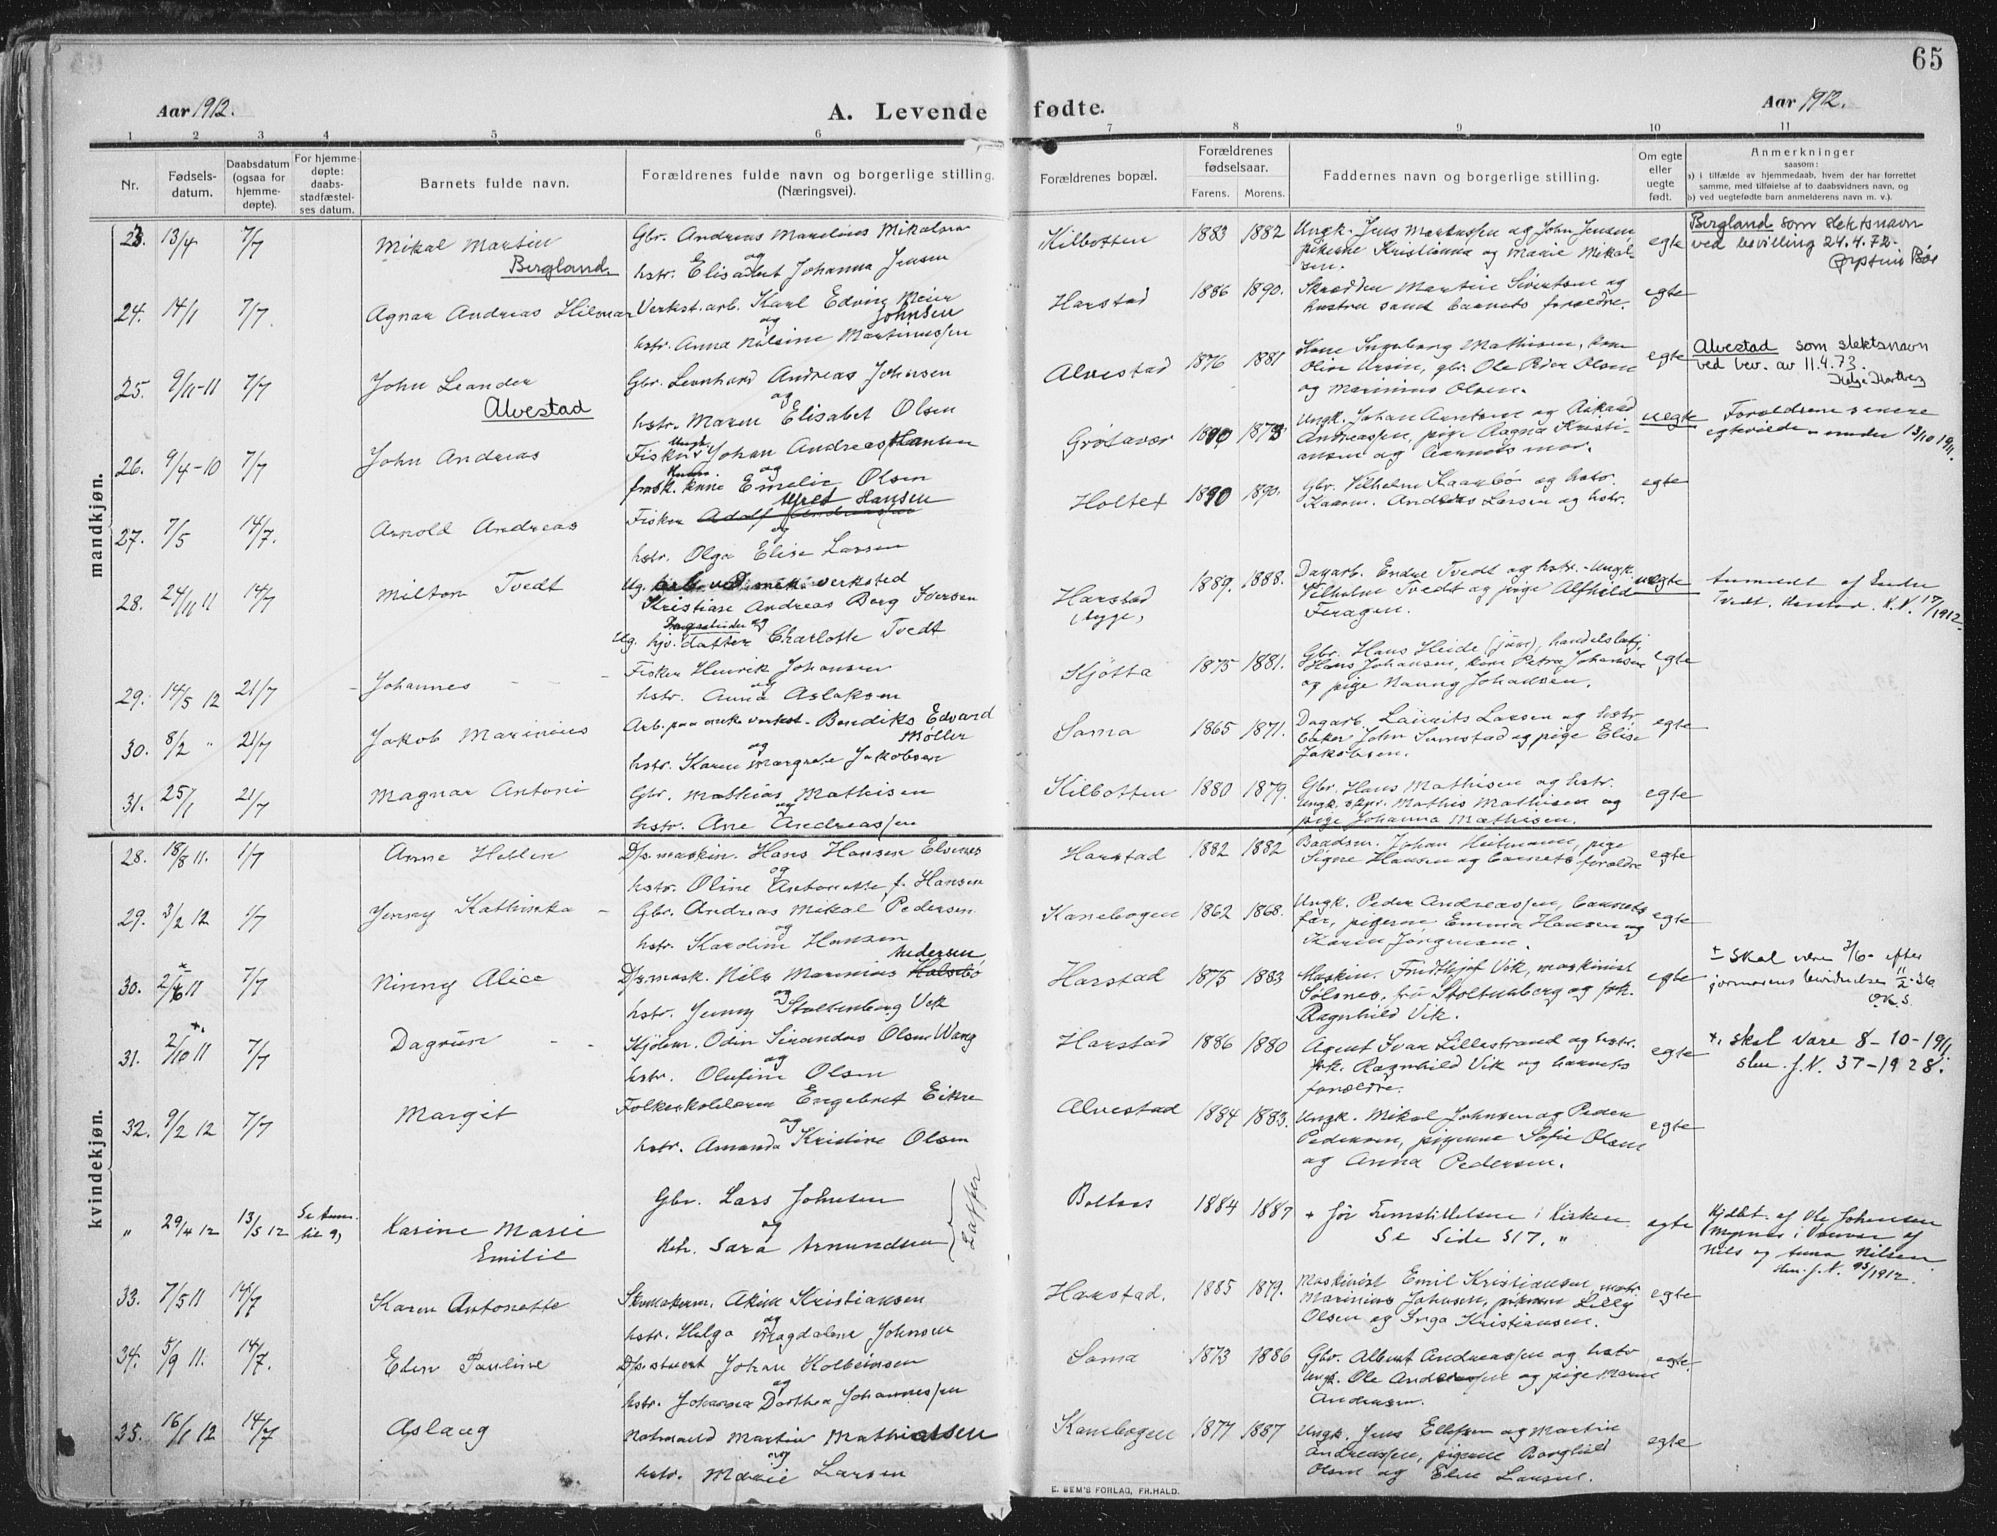 65
Aar 1912.
A. Levende fødte.
Aar 1912.
1 2 3 4 5 6 7 8 9 10 11
Nr.
Fødsels-
datum.
Daabsdatum
(ogsaa for
hjemme-
døpte).
For hjemme-
døpte:
daabs-
stadfæstel-
ses datum.
Barnets fulde navn.
Forældrenes fulde navn og borgerlige stilling.
(Næringsvei).
Forældrenes bopæl.
Forældrenes
fødselsaar.
Farens. Morens.
Faddernes navn og borgerlige stilling.
Om egte
eller
uegte
født.
Anmerkninger
saasom:
a) i tilfælde av hjemmedaab, hvem der har forrettet
samme, med tilføielse af to daabsvidners navn, og
b) ved uegtefødte barn anmelderens navn m. v.).
mandkjøn.
23. 13/4 7/7 Mikal Martin
Bergland
Gbr. Andreas Marelius Mikalsen
og
hstr. Elisabet Johanna Jensen
Kilbotten 1883 1882
Ungk. Jens Martussen og John Jensen
pikerne Kristianna og Marie Mikal-
sen.
egte
Bergland som slektsnavn
ved bevilling 24.4.72.
24. 14/1 7/7. Agnar Andreas Hilmar
Verkst. arb. Karl Edvin Meier
Johnsen
og
hstr. Anna Nilsine Martinussen
Harstad 1886 1890.
Skrædder Martin Sivertsen og
hustru samt barnets forældre.
egte
25. 9/11-11 7/7 John Leander
Alvestad
Gbr. Leonhard Andreas Johnsen
og
hstr. Maren Elisabet Olsen
Alvestad 1876 1881
Kone Ingeborg Mathisen, kone
Oline Arsin, gbr. Ole Peder Olsen
og Marinius Olsen.
egte
Alvestad som slektsnavn
ved bev. av 11.4.73.
26. 9/4-10 7/7 John Andreas
Fisker Ungk. Johan Andreas Hansen
og
Emelie Olsen
Grøtavær 1890 1873
Ungk. Johan Arntsen og Rikard
Andreassen, pige Ragna Kristi-
ansen og barnets mor.
uegte
Forældrene senere
egteviede under 13/10 1911.
27. 7/5 14/7. Arnold Andreas
Alfred Hansen
Fisker Adolf Andreassen
og
hstr. Olga Elise Larsen
Holtet 1890 1890.
Gbr. Vilhelm Kaarbø og hstr.
Kaarin. Anders Larsen og hstr.
egte
28. 24/11 11 14/7 Milton Tvedt
Ug. arb. ved mek. verksted
Kristian Andreas Berg Iversen
Dagarbeider og
Ug. hjv. datter Charlotte Tvedt
Harstad
1889. 1888.
Dagarb. Endre Tvedt og hstr. Ungk.
Vilhelm Tvedt og pige Alfhild
Feragen.
uegte
Anmeldt af Endre
Tvedt. Harstad. K.N. 17/1912.
29. 14/5 12 21/7 Johannes
Fisker Henrik Johansen
og
hstr. Anna Aslaksen
Kjøtta 1875 1881.
Gbr. Hans Heide (jun), handelsbetj.
Hans Johansen, kone Petra Johansen
og pige Nanny Johansen.
egte
30. 8/2 " 21/7 Jakob Marinius
Arb. paa mek. verkst. Bendiks Edvard
Møller
og
hstr. Karen Margrete Jakobsen
Sama 1865 1871.
Dagarb. Laurits Larsen og hstr
baker John Sunestad og pige Elise
Jakobsen.
egte
31. 25/1 21/7 Magnar Antoni
Gbr. Mathias Mathisen
og
hstr. Ane Andreassen
Kilbotten 1880 1879.
Gbr. Hans Mathisen og hstr.
Ungk. skpr. Mathis Mathisen og
pige Johanna Mathisen.
egte
kvindekjøn.
28. 18/8 11. 1/7 Anne Hellen
D/s maskin. Hans Hansen Elvenes
og
hstr. Oline Antonette f. Hansen
Harstad 1882 1882
Baadsm. Johan Heitmann, pige
Signe Hansen og barnets forældre
egte
29. 3/2 12 1/7 Jenny Kathinka
Gbr. Andreas Mikal Pedersen
og
hstr. Karoline Hansen
Kanebogen 1862 1868.
Ungk. Peder Andreassen, barnets
far, pigerne Emma Hansen og
Karin Jørgensen.
egte
30. 2/6 11 7/7 Ninny Alice
Pedersen
D/s mask. Nils Marinius Halsebø
og
hstr. Jenny Stoltenberg Vik
Harstad 1875 1883
Maskin. Fridthjof Vik, maskinist
Sølsnes, fru Stoltenberg og frk.
Ragnhild Vik.
egte
+ skal være 7/6 - efter
jormorens bevidnelse 11/2-36
O.K.S.
31. 2/10 11 7/7 Dagrun
Kjøbm. Odin Serandus Olsen Wang
og
hstr. Olufine Olsen
Harstad 1886 1880
Agent Ivar Lillestrand og hstr.
frk. Ragnhild Vik og barnets
forældre.
egte
+. skal være 8-10-1911.
skr. J.N. 37-1928.
32. 9/2 12 7/7 Margit
Folkeskolelærer Engebret Eikre
og
hstr. Amanda Kristine Olsen
Alvestad 1884 1883.
Ungk. Mikal Johnsen og Peder
Pedersen, pigerne Sofie Olsen
og Anna Pedersen.
egte
" 29/4 12 13/5 12 Se Anm.
til 9)
Karine Marie
Emilie
Gbr. Lars Johnsen
og
Hstr. Sara Amundsen
Lapper
Boltaas 1884 1887
+ for Fremstillelsen i Kirken
Se Side 317. "
egte
Hjdbt. af Ole Johansen
Nils og Anna Nilsen
skr. J.N. 93/1912.
33. 7/5 11 14/7 Karen Antonette
Skomakerm. Akim Kristiansen
og
hstr. Helga Magdalene Johnsen
Harstad. 1885 1879.
Maskinist Emil Kristiansen, matr.
Marinius Johnsen, pikerne Lilly
Olsen og Inga Kristiansen.
egte
34. 5/9 11. 14/7. Elen Pauline
D/s stuert Johan Kolbeinsen
og
hstr. Johanna Dorthea Johannessen
Sama 1873 1886
Gbr. Albert Andreassen og hstr
Ungk. Ole Andreassen og pige Marie
Andersen.
egte.
35. 16/1 12 14/7 Aslaug
Notmand Martin Mathiassen
og
hstr. Marie Larsen
Kanebogen 1877 1887
Ungk. Jens Ellefsen og Martin
Andreassen, pigerne Borghild
Olsen og Elen Larsen.
egte
E. SEM'S FORLAG, FR.HALD.